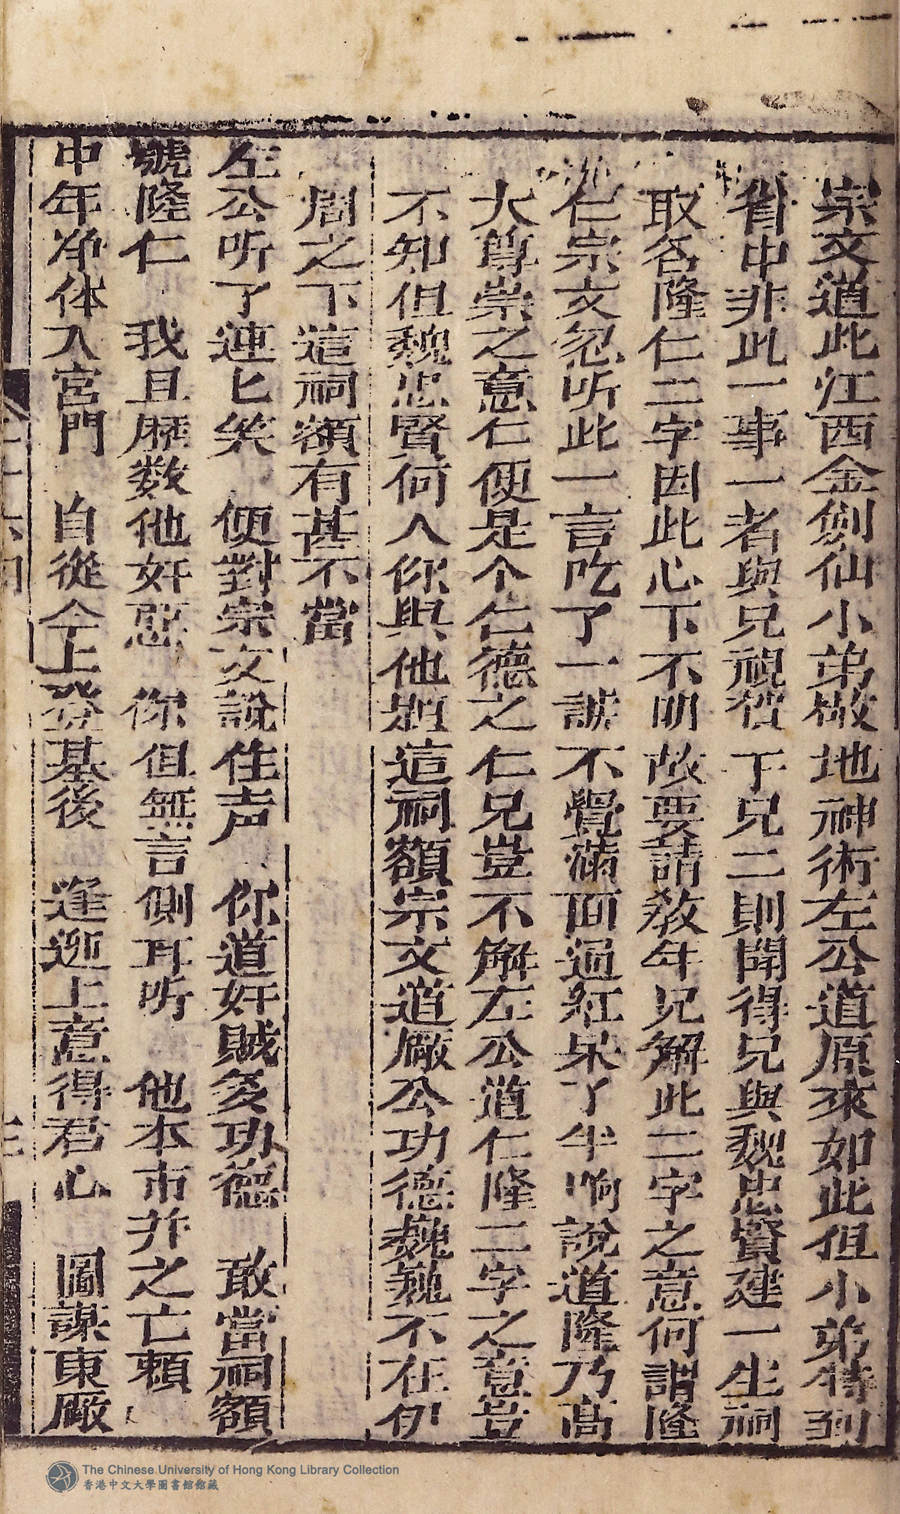 宗文道此江西金劍仙小弟故地神術左公道原來如此但小弟特到
省中非此一事一者與兄視從下兄二則聞得兄與魏忠賢建一生祠
取名隆仁二字因此心下不明故要請教年兄解此二字之意何謂隆
仁宗文忽听此一言吃了一誠不覺滿面過紅呆了半晌說道隆乃高
大尊崇之意仁便是个仁德之仁兄豈不解左公道仁隆二字之意豈
不知但魏忠賢何人你與他題這祠額宗文道厰公功德巍巍不在伊
周之下這祠額有甚不當
左公听了連匕笑 便對宗文說住声 你道奸賊多功德 敢當祠額
號隆仁 我且歷数他奸惡 你但無言側耳听 他本市井之亡賴
中年净体入宮門 自從今上登基後 逢迎上意得君心 圖謀東厰
The Chinese University of Hong Kong Library Collection
香港中文大學圖書館館藏